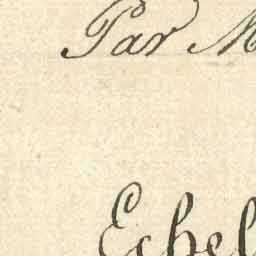 Par M
Echel